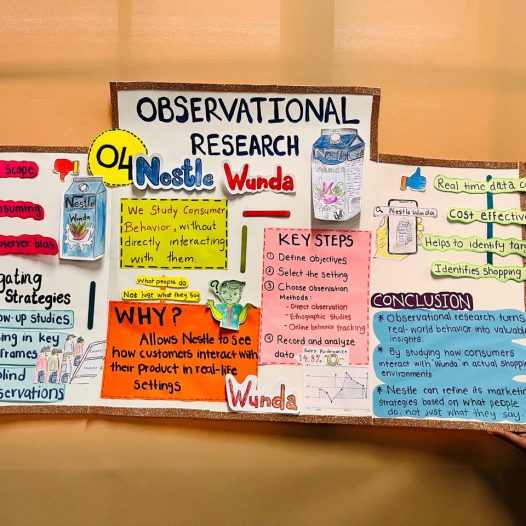 OBSERVATIONAL
RESEARCH
04
Nestle Wunda
SCOPE
bias
Nestle
Wunda
Strategies
studies
in key
We Study Consumer
Behavior, without
directly interacting
with them.
What people do
Not just what they say
WHY?
Allows Nestle to see
how customers interact with
their product in real-life
settings
KEY STEPS
1 Define objectives
2 Select the setting
3 Choose observation
Methods:
- Direct observation
- Ethographic studies
- Online behavior tracking
4 Record and analyze
data
Sales Performance
Wunda
Nestle Wunda
Real time data
Cost
Helps to identify
Identifies Shopping
CONCLUSION
* Observational research turns
real-world behavior into
insights.
* By studying how consumers
interact with Wunda in actual
environments.
* Nestle can refine its
strategies based on what people
do, not just what they say.